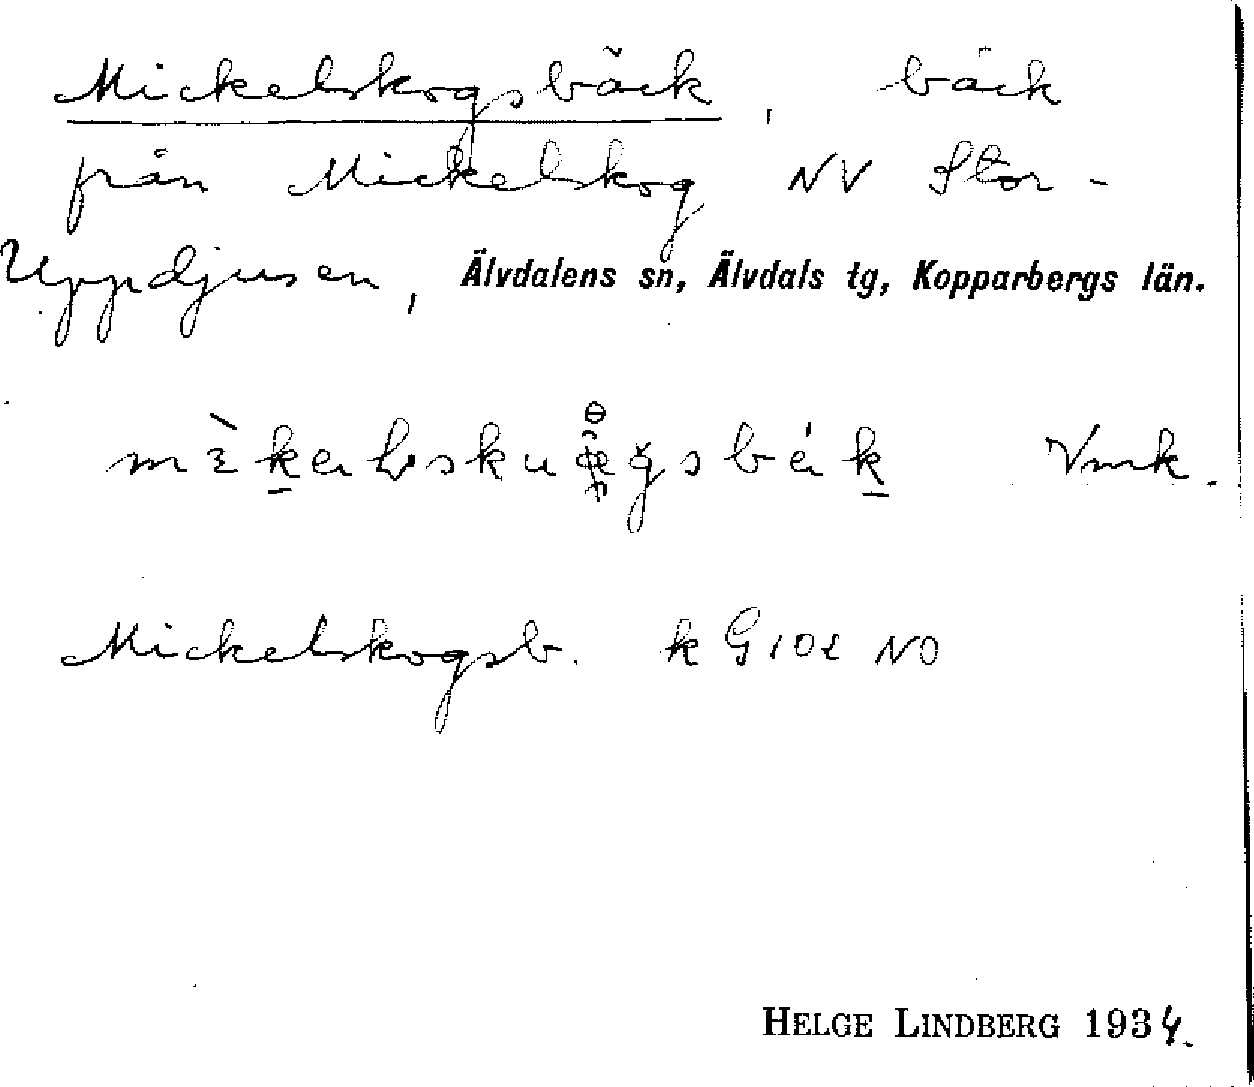 Mickelskogsbäck, bäck
från Mickelskog NV Stor-
Uppdjusen, Älvdalens sn, Älvdals tg, Kopparbergs län.
Vmk.
Mickelskogsb. k G 102 NO
HELGE LINDBERG 1934.